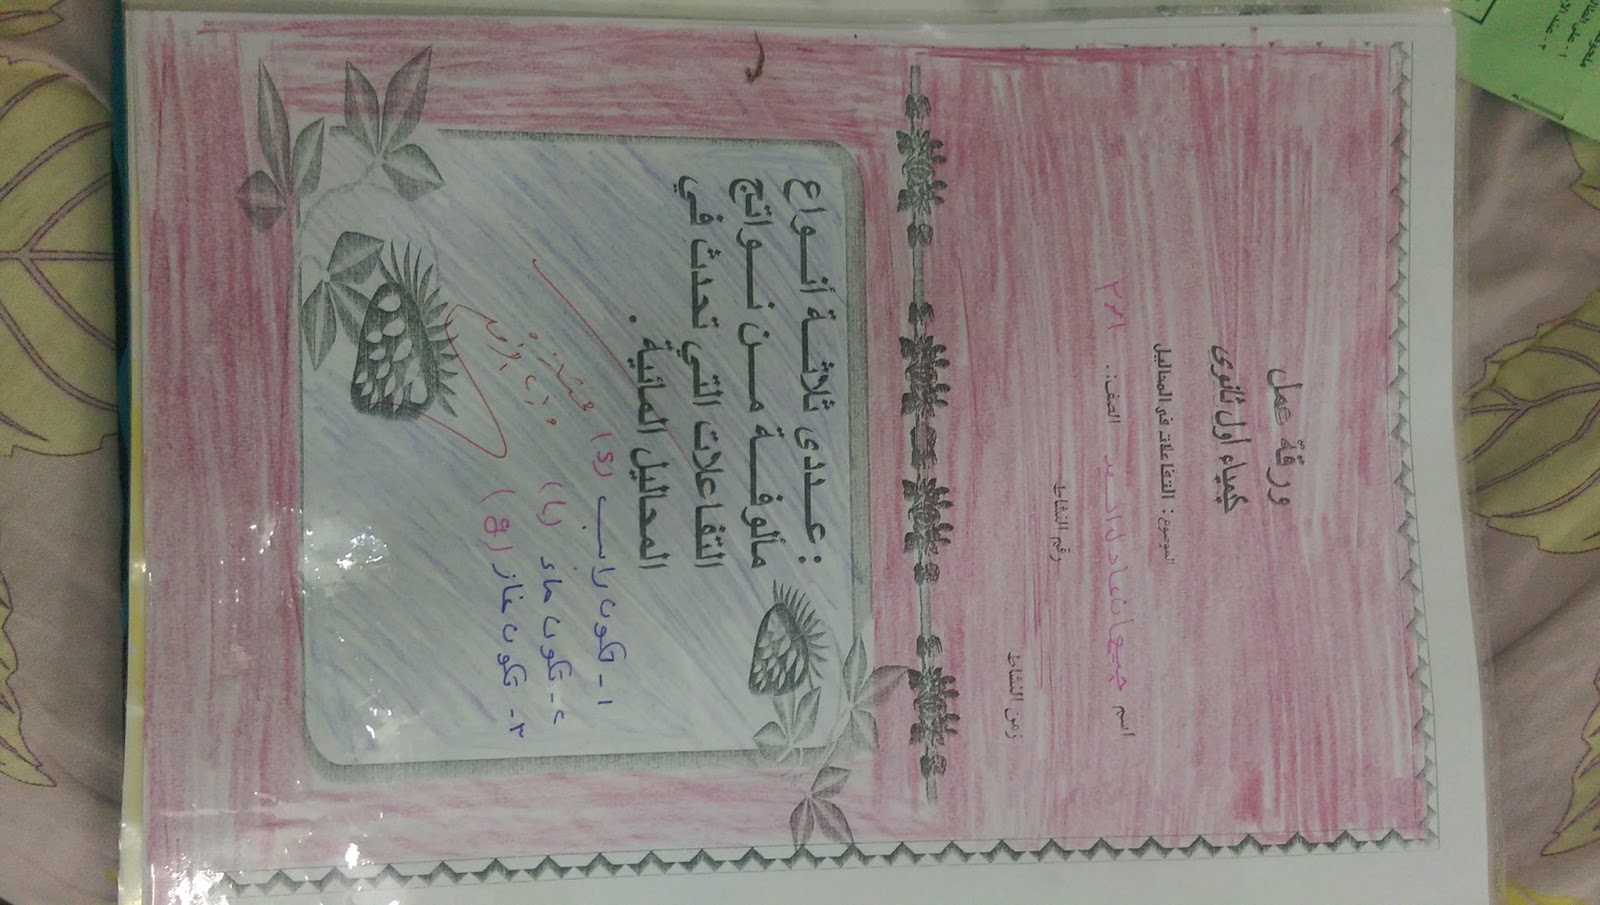 ورقة عمل
كيمياء أول ثانوي
الموضوع: التفاعلات في المحاليل
اسم جيهان عادل السيد الصف: ٢٢١
رقم النشاط
زمن النشاط
عددي ثلاثة أنواع :
مألوفة من نواتج
التفاعلات التي تحدث في
المحاليل المائية.
١- تكون راسب (s)
٢- تكون ماء (l)
٣- تكون غاز (g)
ممتازة